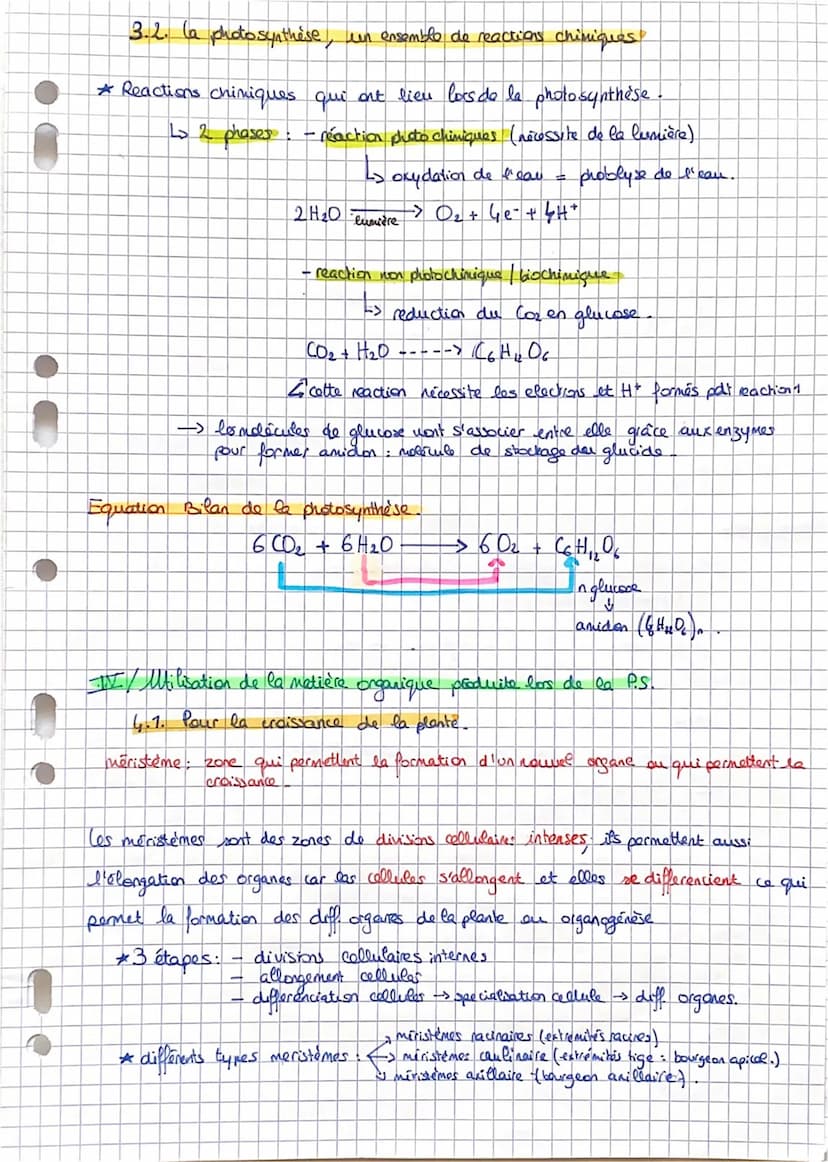 3.2. La photosynthèse, un ensemble de reactions chimiques
* Reactions chimiques qui ont lieu lors de la photosynthèse.
↳ 2 phases : - réaction photochimiques (nécessite de la lumière)
↳ oxydation de l'eau = photolyse de l'eau.
2 H₂O lumière → O₂ + 4e⁻ + 4H⁺
- reaction non photochimique / biochimique
↳ reduction du CO₂ en glucose.
CO₂ + H₂O -----> C₆H₁₂O₆
cette reaction nécessite les electrons et H⁺ formés pdt reaction 1
→ les molécules de glucose vont s'associer entre elle grâce aux enzymes
pour former amidon : molécule de stockage des glucide.
Equation Bilan de la photosynthèse.
6 CO₂ + 6 H₂O → 6 O₂ + C₆H₁₂O₆
n glucose
↓
amidon (C₆H₁₂O₆)n.
IV / Utilisation de la matière organique produite lors de la P.S.
4.1. Pour la croissance de la plante.
méristème : zone qui permettent la formation d'un nouvel organe ou qui permettent la
croissance.
Les méristèmes sont des zones de divisions cellulaires intenses, ils permettent aussi
l'élongation des organes car les cellules s'allongent et elles se differencient ce qui
permet la formation des diff. organes de la plante ou organogénèse
* 3 étapes : - divisions cellulaires internes
- allongement cellules
- differenciation cellules → specialisation cellule → diff. organes.
* différents types meristèmes : → méristèmes racinaires (extremités racines)
→ méristèmes caulinaire (extrémités tige : bourgeon apical.)
→ méristèmes axillaire (bourgeon axillaire).